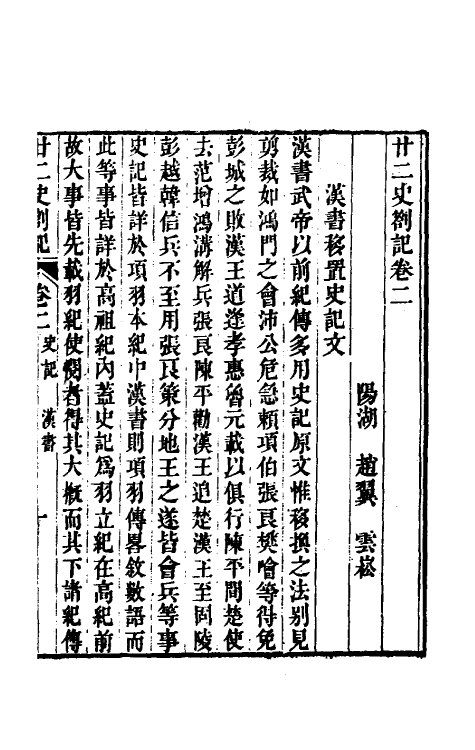 廿二史劄記卷二
陽湖 趙翼 雲崧
漢書移置史記文
漢書武帝以前紀傳多用史記原文惟移換之法别見
剪裁如鴻門之會沛公危急賴項伯張良樊噲等得免
彭城之敗漢王道逢孝惠魯元載以俱行陳平間楚使
去范增鴻溝解兵張良陳平勸漢王追楚漢王至固陵
彭越韓信兵不至用張良策分地王之遂皆會兵等事
史記皆詳於項羽本紀中漢書則項羽傳畧敘數語而
此等事皆詳於高祖紀內蓋史記爲羽立紀在高紀前
故大事皆先載羽紀使閱者得其大概而其下諸紀傳
廿二史劄記 卷二 史記 漢書 一